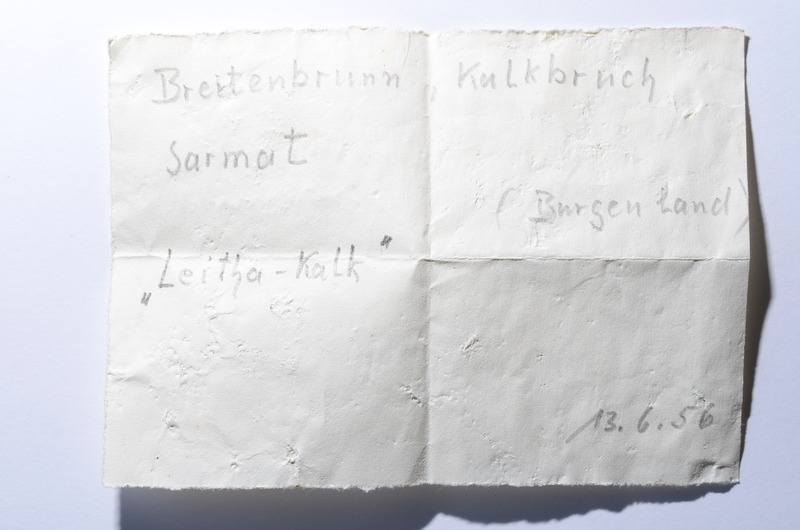 Breitenbrunn, Kalkbruch
Sarmat
(Burgenland)
„Leitha-Kalk"
13.6.56